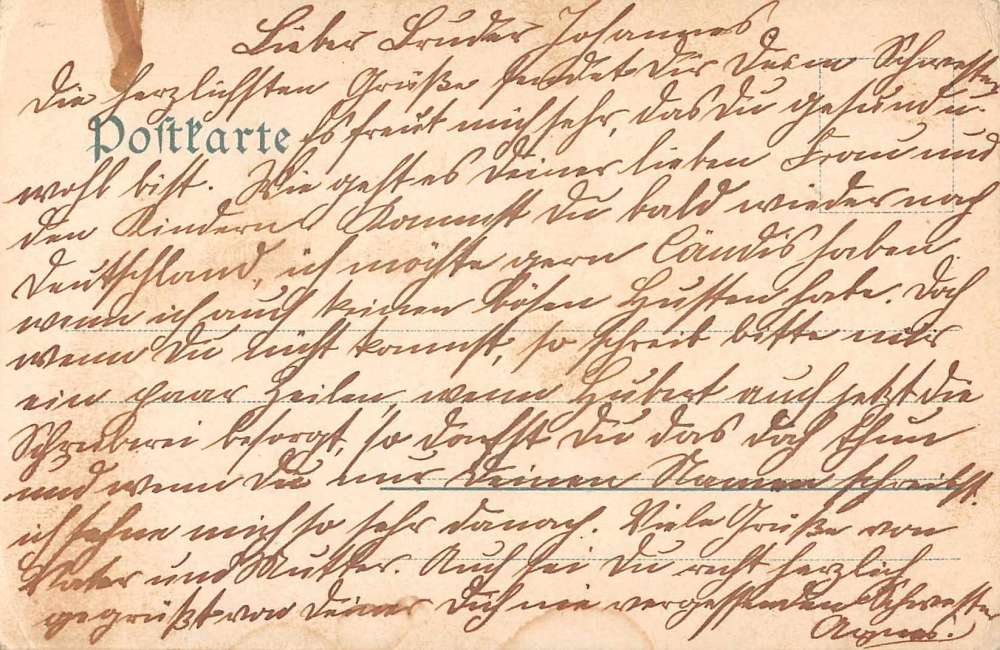 Lieber Bruder Johannes
die herzlichsten Grüße sendet Dir Deine Schwester
Postkarte
Es freut mich sehr, das Du gesund u.
wohl bist. Wie geht es Deiner lieben Frau und
den Kindern Kommst Du bald wieder nach
Deutschland, ich möchte gern haben
wenn ich auch keinen bösen Husten habe. Doch
wenn Du nicht kommst, so schreib bitte mir
ein paar Zeilen, wenn Hubert auch jetzt die
Schreiberei besorgt, so darfst Du das doch thun
und wenn Du nur Deinen Namen schreibst.
ich sehne mich so sehr danach. Viele Grüße von
Vater und Mutter. Auch sei Du recht herzlich
gegrüßt von Deiner Dich nie vergessenden Schwester
Agnes.